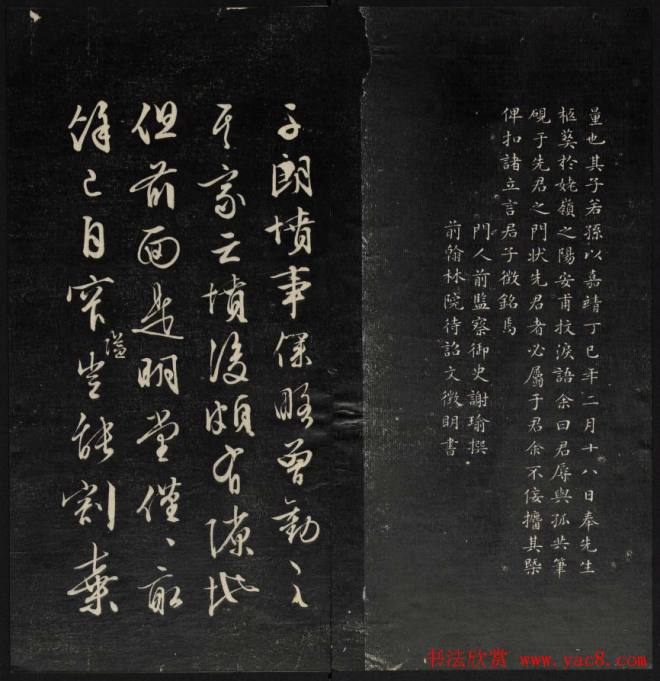 量也其子若孫以嘉靖丁巳年二月十八日奉先生
柩葬於姥嶺之陽安甫抆淚語余曰君辱與孤共筆
硯于先君之門狀先君者必屬于君余不佞攟其槩
俾扣諸立言君子徵銘焉
門人前監察御史謝瑜撰
前翰林院待詔文徵明書
子朗墳事保曾勸之
其家云墳後頗有隙地
但前面是明堂僅僅
餘已自窄隘豈能割棄
书法欣赏 www.yac8.com